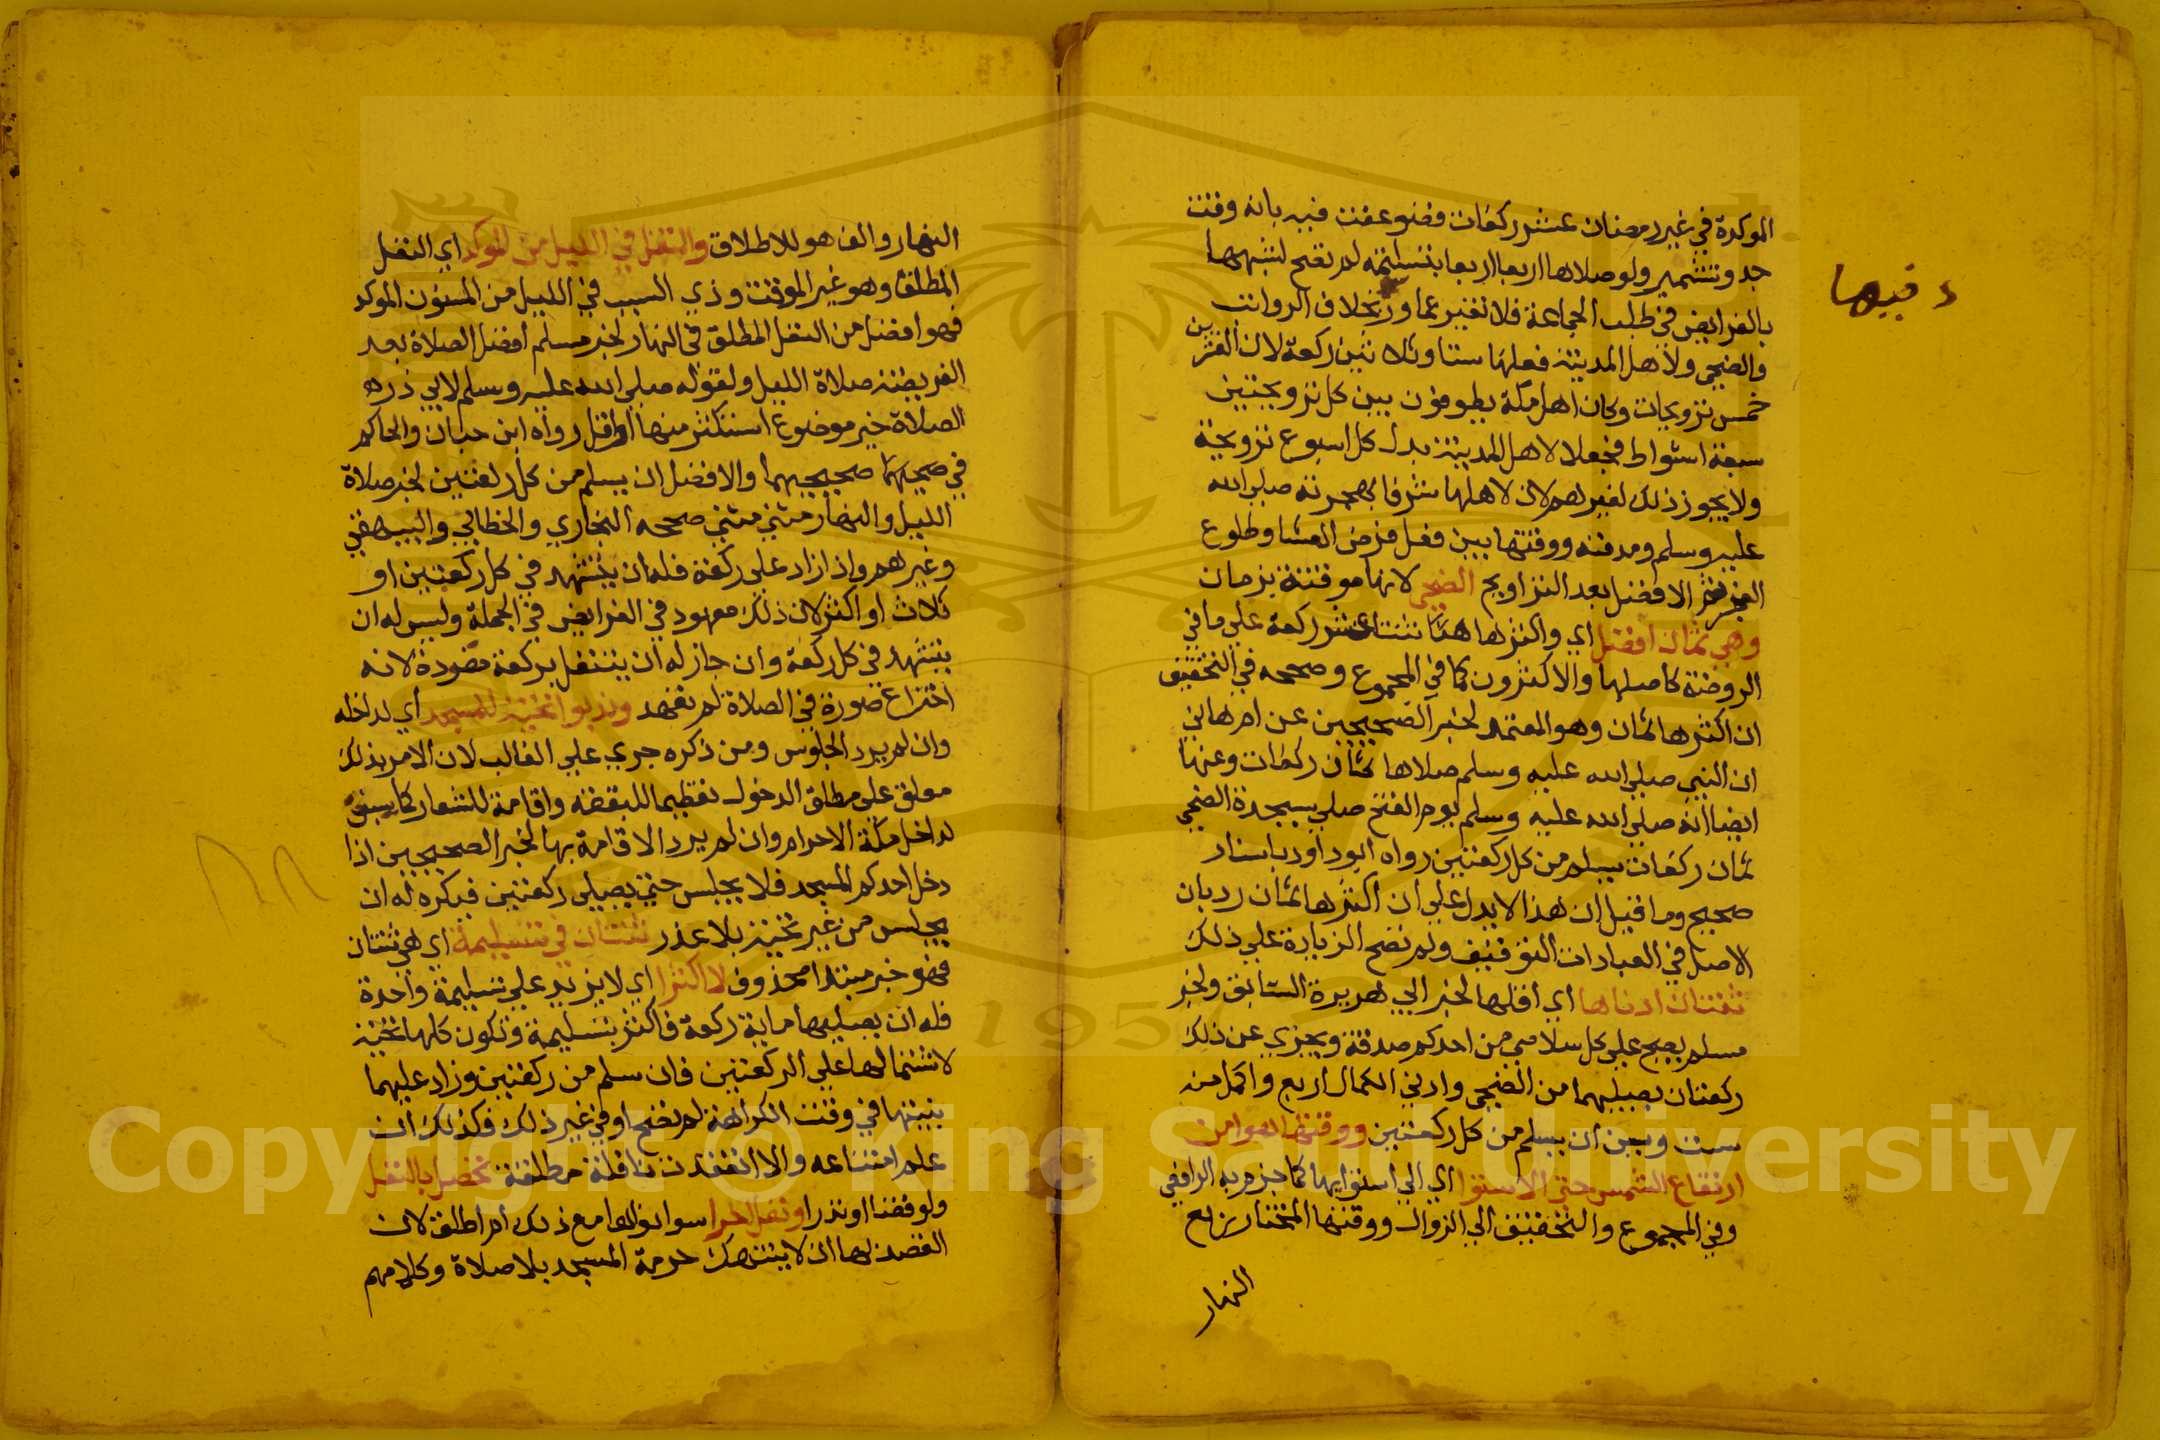 الموكدة في غير رمضان عشر ركعات فضوعفت فيه بانه وقت
جد وتشمير ولو صلاها اربعا اربعا بتسليمة لم تصح لشبهها
بالفرايض في طلب الجماعة فلا تغير عما ورد بخلاف الرواتب
والضحى ولاهل المدينة فعلها ستا وثلاثين ركعة لان العشرين
خمس ترويحات وكان اهل مكة يطوفون بين كل ترويحتين
سبعة اشواط فجعل لاهل المدينة بدل كل اسبوع ترويحة
ولا يجوز ذلك لغيرهم لان لاهلها شرفا بهجرته صلى الله
عليه وسلم ومدفنه ووقتها بين فعل فرض العشا وطلوع
الفجر ثم الافضل بعد التراويح الضحى لانها موقتة بزمان
وهي ثمان افضل اي واكثرها هنا ثنتا عشر ركعة على ما في
الروضة كاصلها والاكثرون كما في المجموع وصححه في التحقيق
ان اكثرها ثمان وهو المعتمد لخبر الصحيحين عن ام هاني
ان النبي صلى الله عليه وسلم صلاها ثمان ركعات وعنها
ايضا انه صلى الله عليه وسلم يوم الفتح صلى سبحة الضحى
ثمان ركعات يسلم من كل ركعتين رواه ابو داود باسناد
صحيح وما قيل ان هذا لا يدل على ان اكثرها ثمان رد بان
الاصل في العبادات التوقيف ولم تصح الزيادة على ذلك
ثنتان ادناها اي اقلها لخبر ابي هريرة السابق ولخبر
مسلم يصبح على كل سلامى من احدكم صدقة ويجزي عن ذلك
ركعتان يصليهما من الضحى وادنى الكمال اربع واكمل منه
ست ويسن ان يسلم من كل ركعتين ووقتها هو من
ارتفاع الشمس حتى الاستوا اي الى استوايها كما جزم به الرافعي
وفي المجموع والتحقيق الى الزوال ووقتها المختار ربع
النهار
فيها
النهار والف هو للاطلاق والنفل في الليل من الموكد اي النفل
المطلق وهو غير الموقت وذي السبب في الليل من المسنون الموكد
فهو افضل من النفل المطلق في النهار لخبر مسلم افضل الصلاة بعد
الفريضة صلاة الليل ولقوله صلى الله عليه وسلم لابي ذر
الصلاة خير موضوع استكثر منها او اقل رواه ابن حبان والحاكم
في صحيحهما صحيحيهما والافضل ان يسلم من كل ركعتين لخبر صلاة
الليل والنهار مثنى مثنى صححه البخاري والخطابي والبيهقي
وغيرهم واذا زاد على ركعة فله ان يتشهد في كل ركعتين او
ثلاث او اكثر لان ذلك معهود في الفرايض في الجملة وليس له ان
يتشهد في كل ركعة وان جاز له ان يتنفل بركعة مفردة لانه
اختراع صورة في الصلاة لم تعهد وندبوا تحية للمسجد اي لداخله
وان لم يرد الجلوس ومن ذكره جرى على الغالب لان الامر بذلك
معلق على مطلق الدخول تعظيما للبقعة واقامة للشعار كما يسن
لداخل مكة الاحرام وان لم يرد الاقامة بها لخبر الصحيحين اذا
دخل احدكم المسجد فلا يجلس حتى يصلي ركعتين فيكره له ان
يجلس من غير تحية بلا عذر ثنتان في تسليمة اي هي ثنتان
فهو خبر مبتدا محذوف لا اكثرا اي لا يزيد على تسليمة واحدة
فله ان يصليها ماية ركعة فاكثر بتسليمة وتكون كلها تحية
لاشتمالها على الركعتين فان سلم من ركعتين وزاد عليهما
بنيتها في وقت الكراهة لم تصح او في غير ذلك فكذلك ان
علم امتناعه والا انعقدت نافلة مطلقة تحصل بالنفل
ولو قضا او نذرا وفعل اخرا سوا نواها مع ذلك ام اطلق لان
القصد بها ان لا ينتهك حرمة المسجد بلا صلاة وكلامهم
Copyright © King Saud University
1957